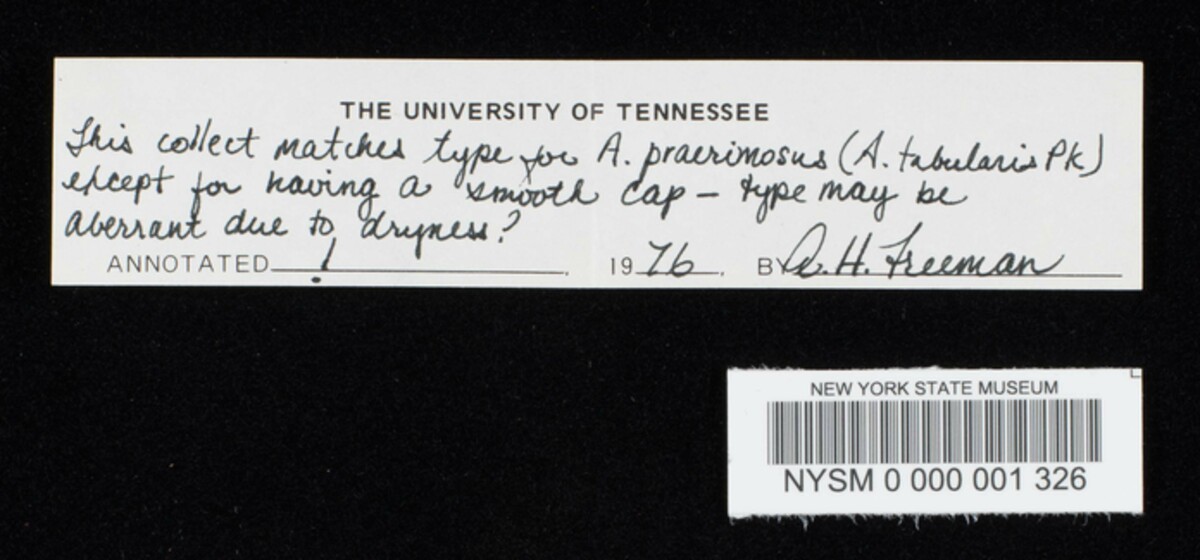 THE UNIVERSITY OF TENNESSEE
This collect matches type for A. praerimosus (A. tabularis Pk)
except for having a smooth cap – type may be
aberrant due to dryness?
ANNOTATED ! . 1976. BY A. H. Freeman
NEW YORK STATE MUSEUM
NYSM 0 000 001 326